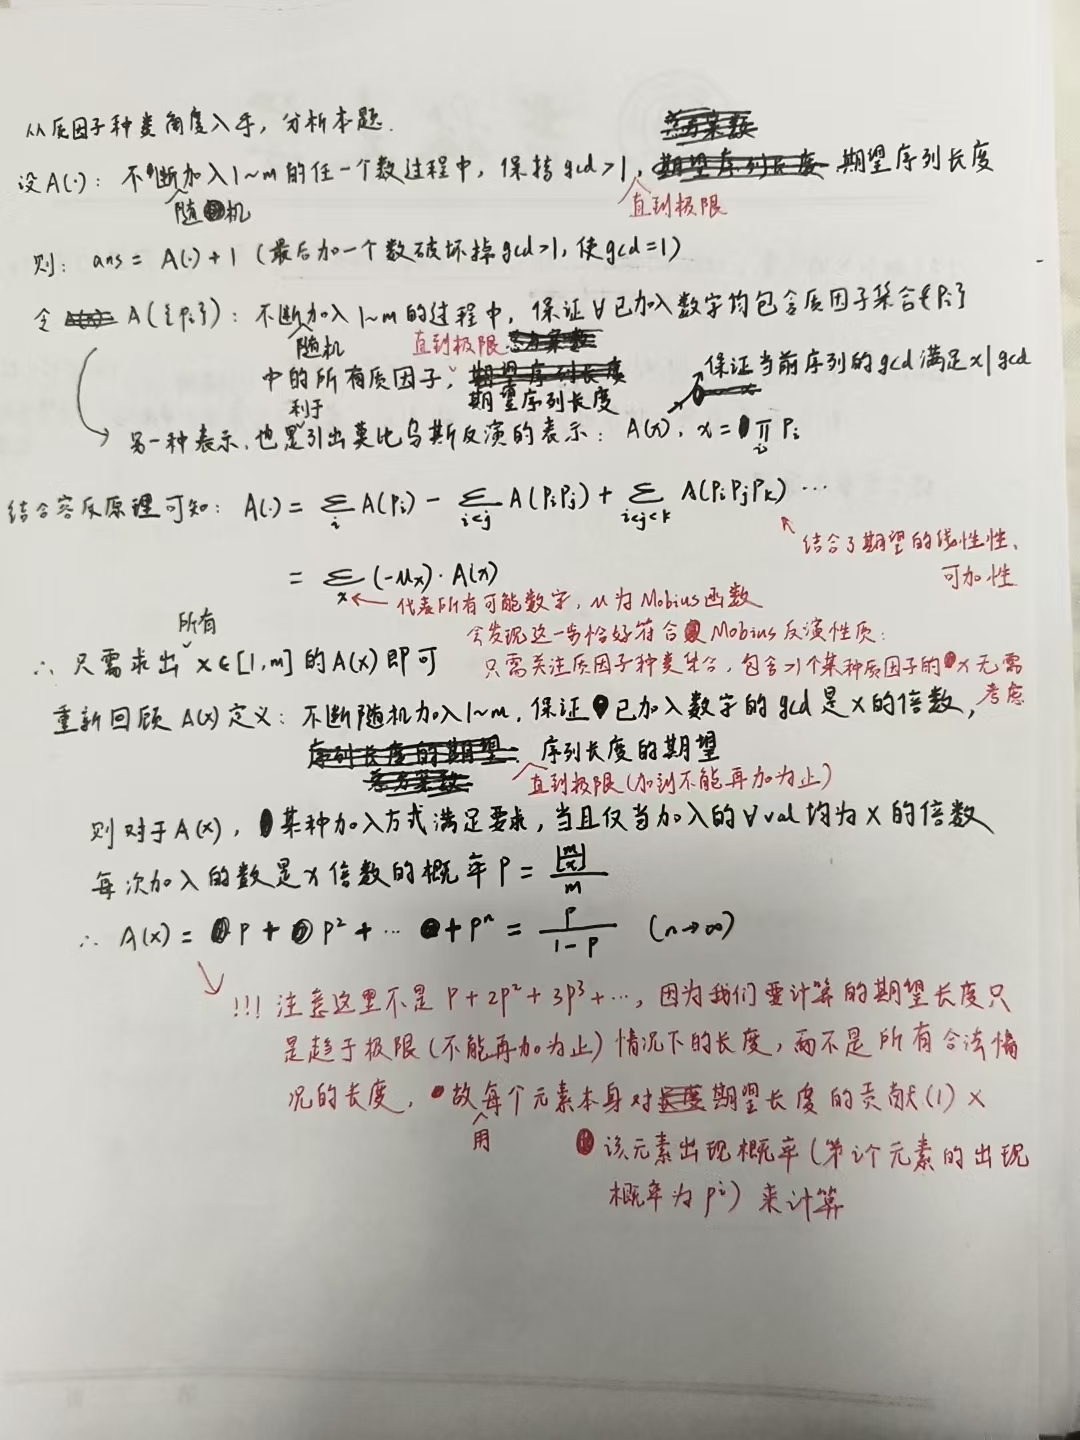 从质因子种类角度入手，分析本题.
设A(·)：不断加入1~m的任一个数过程中，保持gcd>1，期望序列长度
随机
直到极限
则：ans = A(·)+1（最后加一个数破坏掉gcd>1，使gcd=1）
令 A({Pi})：不断加入1~m的过程中，保证∀已加入数字均包含质因子集合{Pi}
随机
直到极限
中的所有质因子，期望序列长度
保证当前序列的gcd满足x|gcd
利于
另一种表示，也是引出莫比乌斯反演的表示：A(x)，x=∏Pi
i
结合容斥原理可知：A(·) = Σ A(Pi) - Σ A(PiPj) + Σ A(PiPjPk) ···
i i<j i<j<k
结合了期望的线性性、
可加性
= Σ (-μx)·A(x)
x ← 代表所有可能数字，μ为Mobius函数
会发现这一步恰好符合Mobius反演性质：
所有
∴ 只需求出x∈[1,m]的A(x)即可
只需关注质因子种类集合，包含>1个某种质因子的x无需
考虑
重新回顾A(x)定义：不断随机加入1~m，保证已加入数字的gcd是x的倍数，
序列长度的期望
直到极限(加到不能再加为止)
则对于A(x)，某种加入方式满足要求，当且仅当加入的∀val均为x的倍数
每次加入的数是x倍数的概率P = ⌊m/x⌋/m
∴ A(x) = P + P² + ··· + Pⁿ = P/(1-P) (n→∞)
!!! 注意这里不是P+2P²+3P³+···，因为我们要计算的期望长度只
是趋于极限(不能再加为止)情况下的长度，而不是所有合法情
况的长度，故每个元素本身对期望长度的贡献(1)×
用
该元素出现概率(第i个元素的出现
概率为pⁱ)来计算